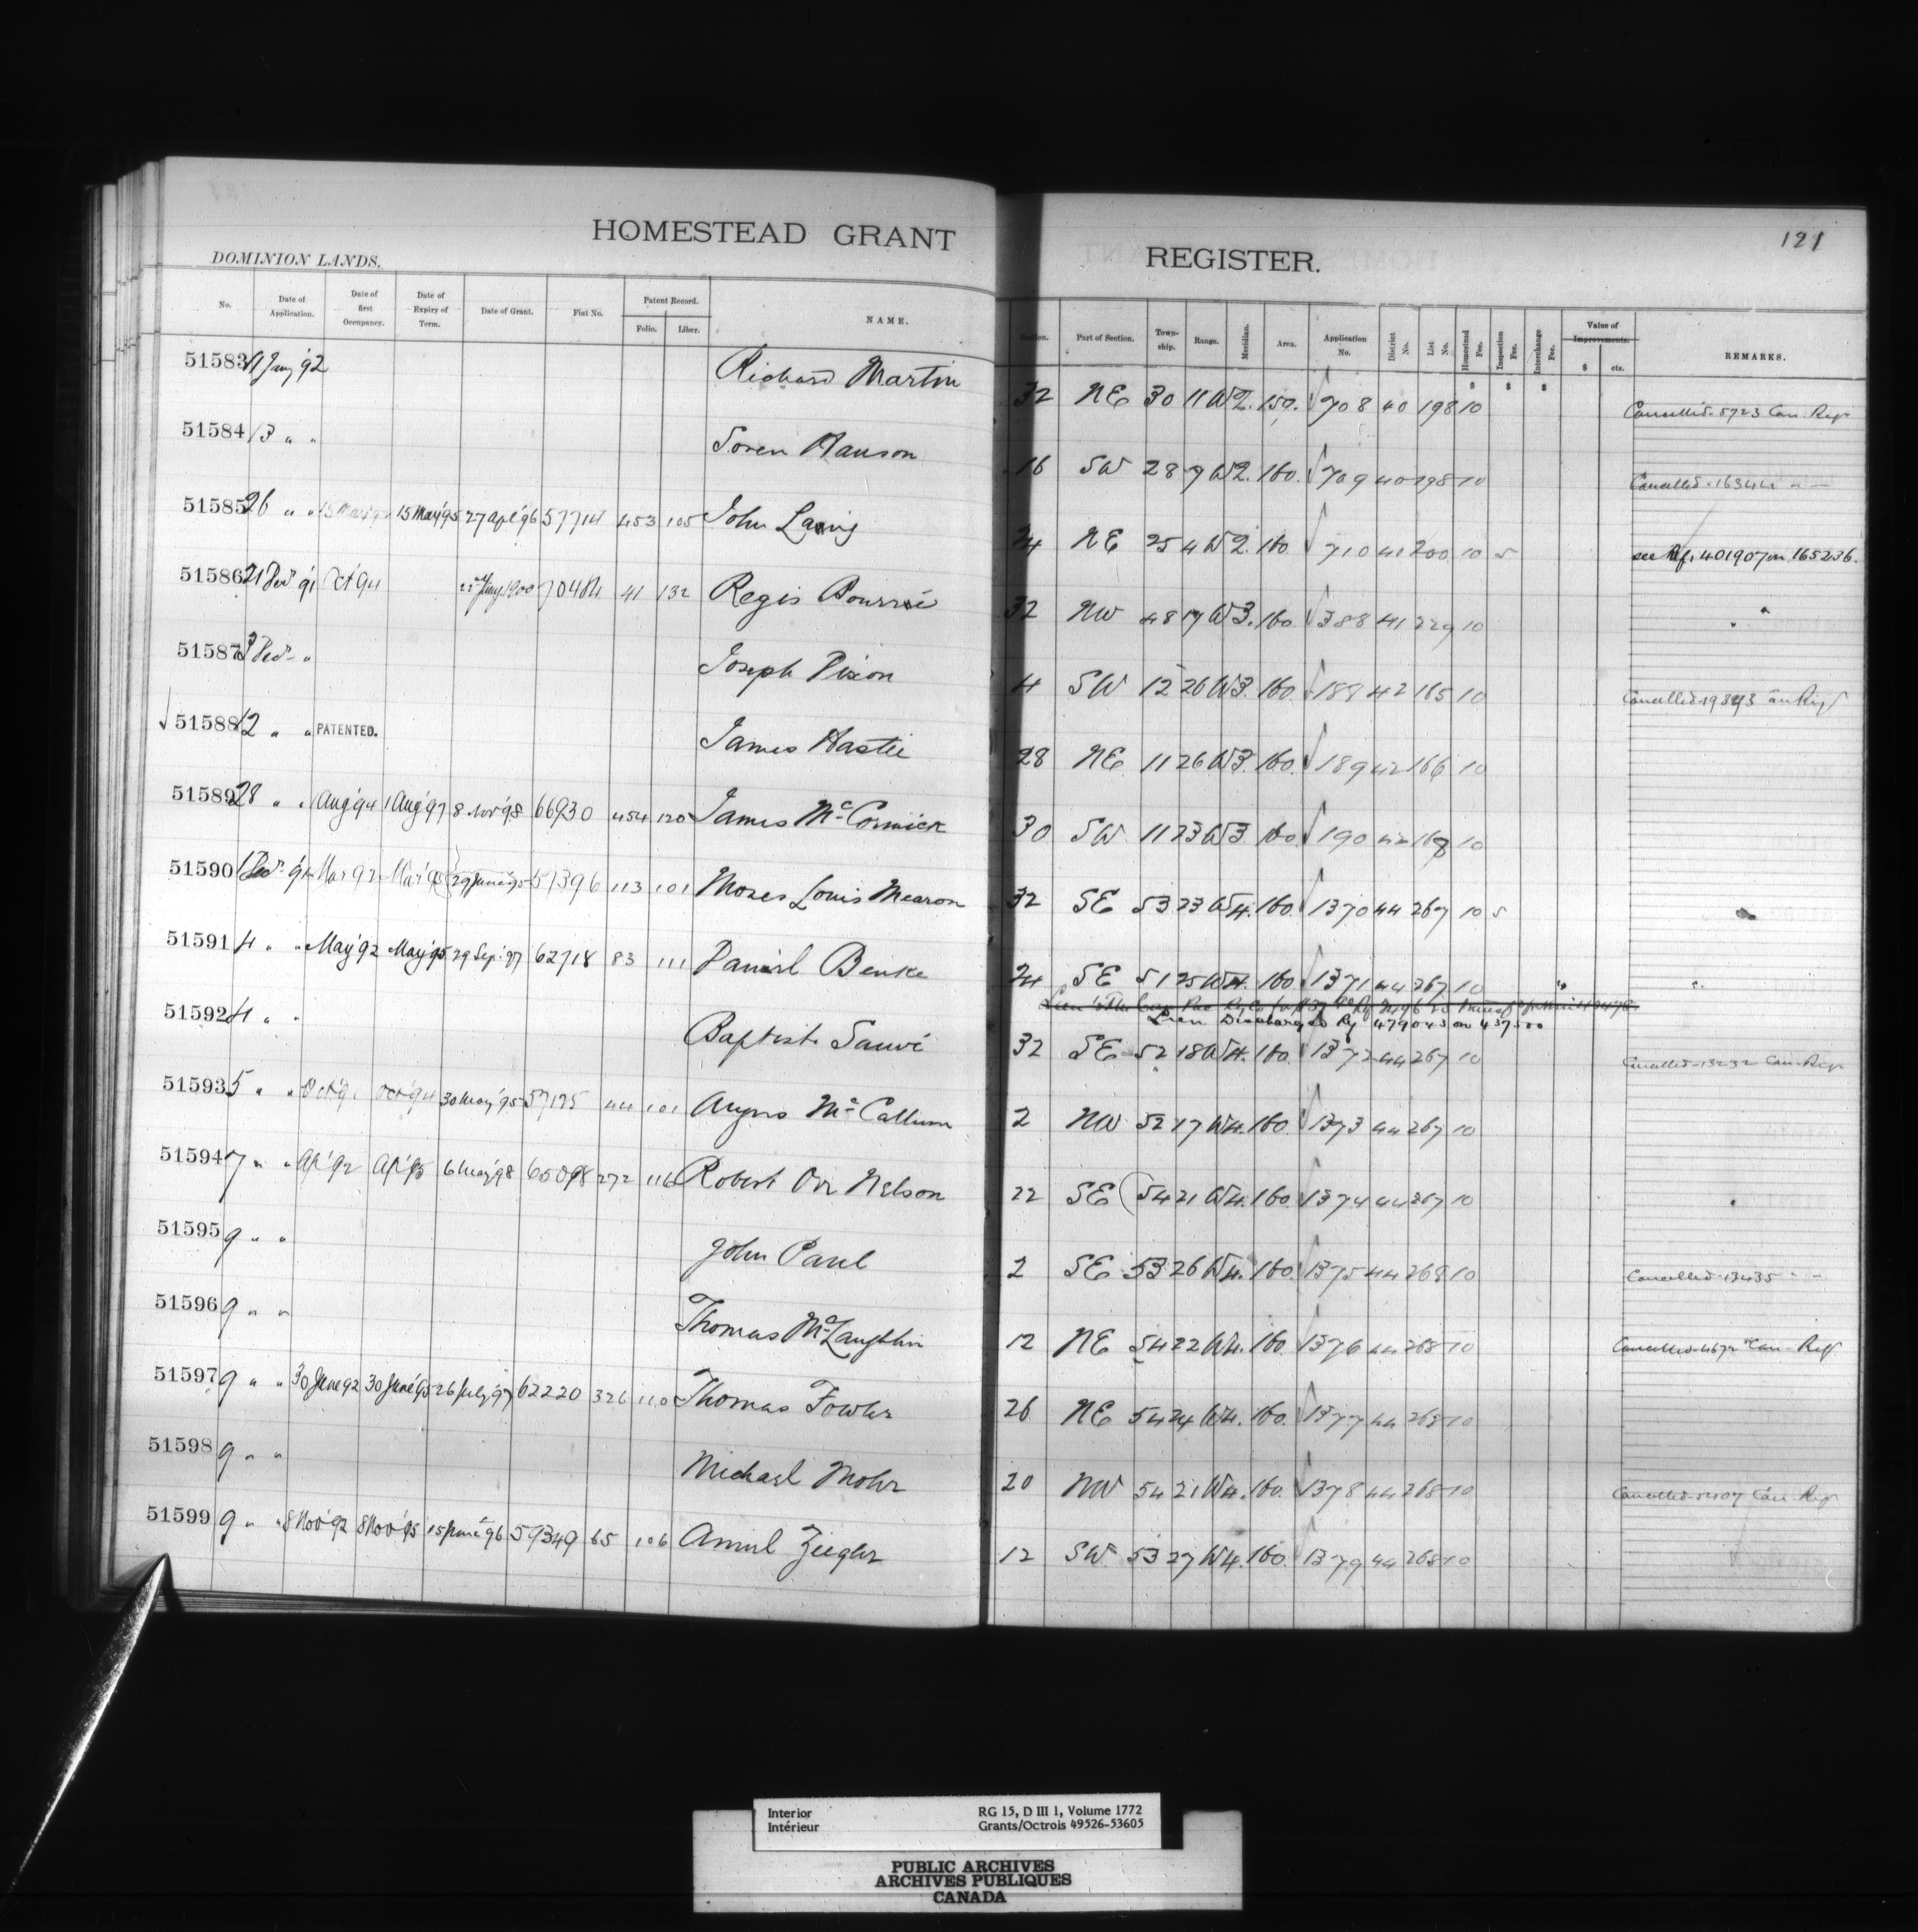 121
HOMESTEAD GRANT REGISTER.
DOMINION LANDS.
No. Date of Application. Date of first Occupancy. Date of Expiry of Term. Date of Grant. Fiat No. Patent Record. Folio. Liber. NAME. Section. Part of Section. Township. Range. Meridian. Area. Application No. District No. List No. Homestead Fee. Inspection Fee. Interchange Fee. Value of Improvements. $ cts. REMARKS.
$ $ $
51583 11 Jany '92 Richard Martin 32 NE 30 11 W2. 159. 708 40 198 10 Cancelled 5723 Can. Regr
51584 13 " " Soren Hanson 16 SW 28 9 W2. 160. 709 40 198 10 Cancelled " —
51585 26 " " 15 May '95 27 Apl '96 57714 453 105 John Laing 24 NE 25 4 W2. 160 710 41 200 10 5 see Rf. 401907 on 165236.
51586 21 Decr '91 Oct '94 22nd Jany 1900 70484 41 132 Regis 32 NW 48 17 W3. 160. 388 41 229 10 "
51587 3 Decr " Joseph Dixon 4 SW 12 26 W3. 160. 188 42 165 10 Cancelled Can Regr
51588 12 " " PATENTED. James Hastie 28 NE 11 26 W3. 160. 189 42 166 10
51589 28 " " 1 Aug '94 1 Aug '97 8 Nov '98 66930 454 120 James McCormick 30 SW 11 23 W3 160 190 42 168 10
51590 1 Decr '91 Mar 92 Mar '95 29 June '95 57396 113 101 Moses Louis Mearon 32 SE 53 23 W4. 160 1370 44 267 10 5
51591 4 " " May '92 May '95 29 Sep. '97 62718 83 111 Daniel Benke 24 SE 51 25 W4. 160. 1371 44 267 10 " "
Lien Discharged Rf 479043 on 437500
51592 4 " " Baptiste Sauvé 32 SE 52 18 W4. 160. 1372 44 267 10 Cancelled 13232 Can. Regr
51593 5 " " Oct '91 Oct '94 30 May '95 57175 44 101 Angus McCallum 2 NW 52 17 W4. 160. 1373 44 267 10
51594 7 " " Ap '92 Ap '95 6 May '98 65098 272 116 Robert Orr Nelson 22 SE 54 21 W4. 160. 1374 44 267 10 "
51595 9 " " John Paul 2 SE 53 26 W4. 160. 1375 44 268 10 Cancelled 13435 " —
51596 9 " " Thomas McLaughlin 12 NE 54 22 W4. 160. 1376 44 268 10 Cancelled 4672 Can. Regr
51597 9 " " 30 June 92 30 June '95 26 July '97 62220 326 110 Thomas Fowler 26 NE 54 24 W4. 160. 1377 44 268 10
51598 9 " " Michael Mohr 20 NW 54 21 W4. 160. 1378 44 268 10 Cancelled Can. Regr
51599 9 " " 8 Nov '92 8 Nov '95 15 June '96 59349 65 106 Amiel Ziegler 12 SW 53 27 W4. 160. 1379 44 268 10
Interior RG 15, D III 1, Volume 1772
Intérieur Grants/Octrois 49526-53605
PUBLIC ARCHIVES
ARCHIVES PUBLIQUES
CANADA